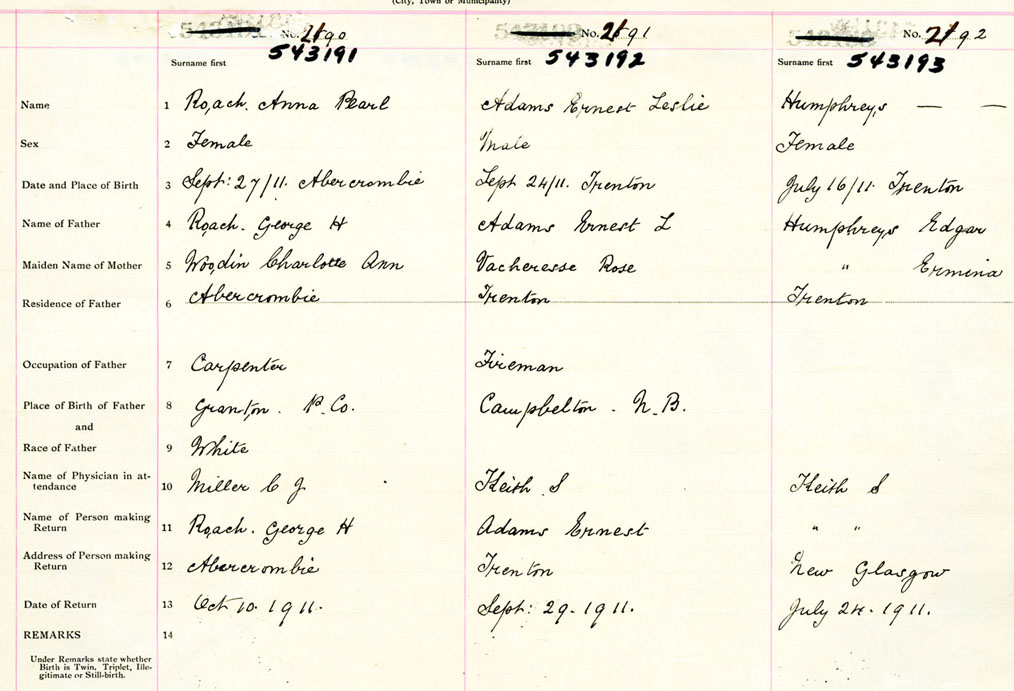 (City, Town or Municipality)
No. 2190 No. 2191 No. 2192
Surname first 543191 Surname first 543192 Surname first 543193
Name 1 Roach. Anna Pearl Adams Ernest Leslie Humphreys — —
Sex 2 Female Male Female
Date and Place of Birth 3 Sept: 27/11. Abercrombie Sept 24/11. Trenton July 16/11. Trenton
Name of Father 4 Roach. George H Adams Ernest L Humphreys Edgar
Maiden Name of Mother 5 Woodin Charlotte Ann Vacheresse Rose " Ermina
Residence of Father 6 Abercrombie Trenton Trenton
Occupation of Father 7 Carpenter Fireman
Place of Birth of Father 8 Granton. P. Co. Campbelton. N.B.
and
Race of Father 9 White
Name of Physician in at-
tendance 10 Miller C J. Keith S Keith S
Name of Person making
Return 11 Roach. George H Adams Ernest " "
Address of Person making
Return 12 Abercrombie Trenton New Glasgow
Date of Return 13 Oct 10. 1911. Sept: 29. 1911. July 24. 1911.
REMARKS 14
Under Remarks state whether
Birth is Twin, Triplet, Ille-
gitimate or Still-birth.